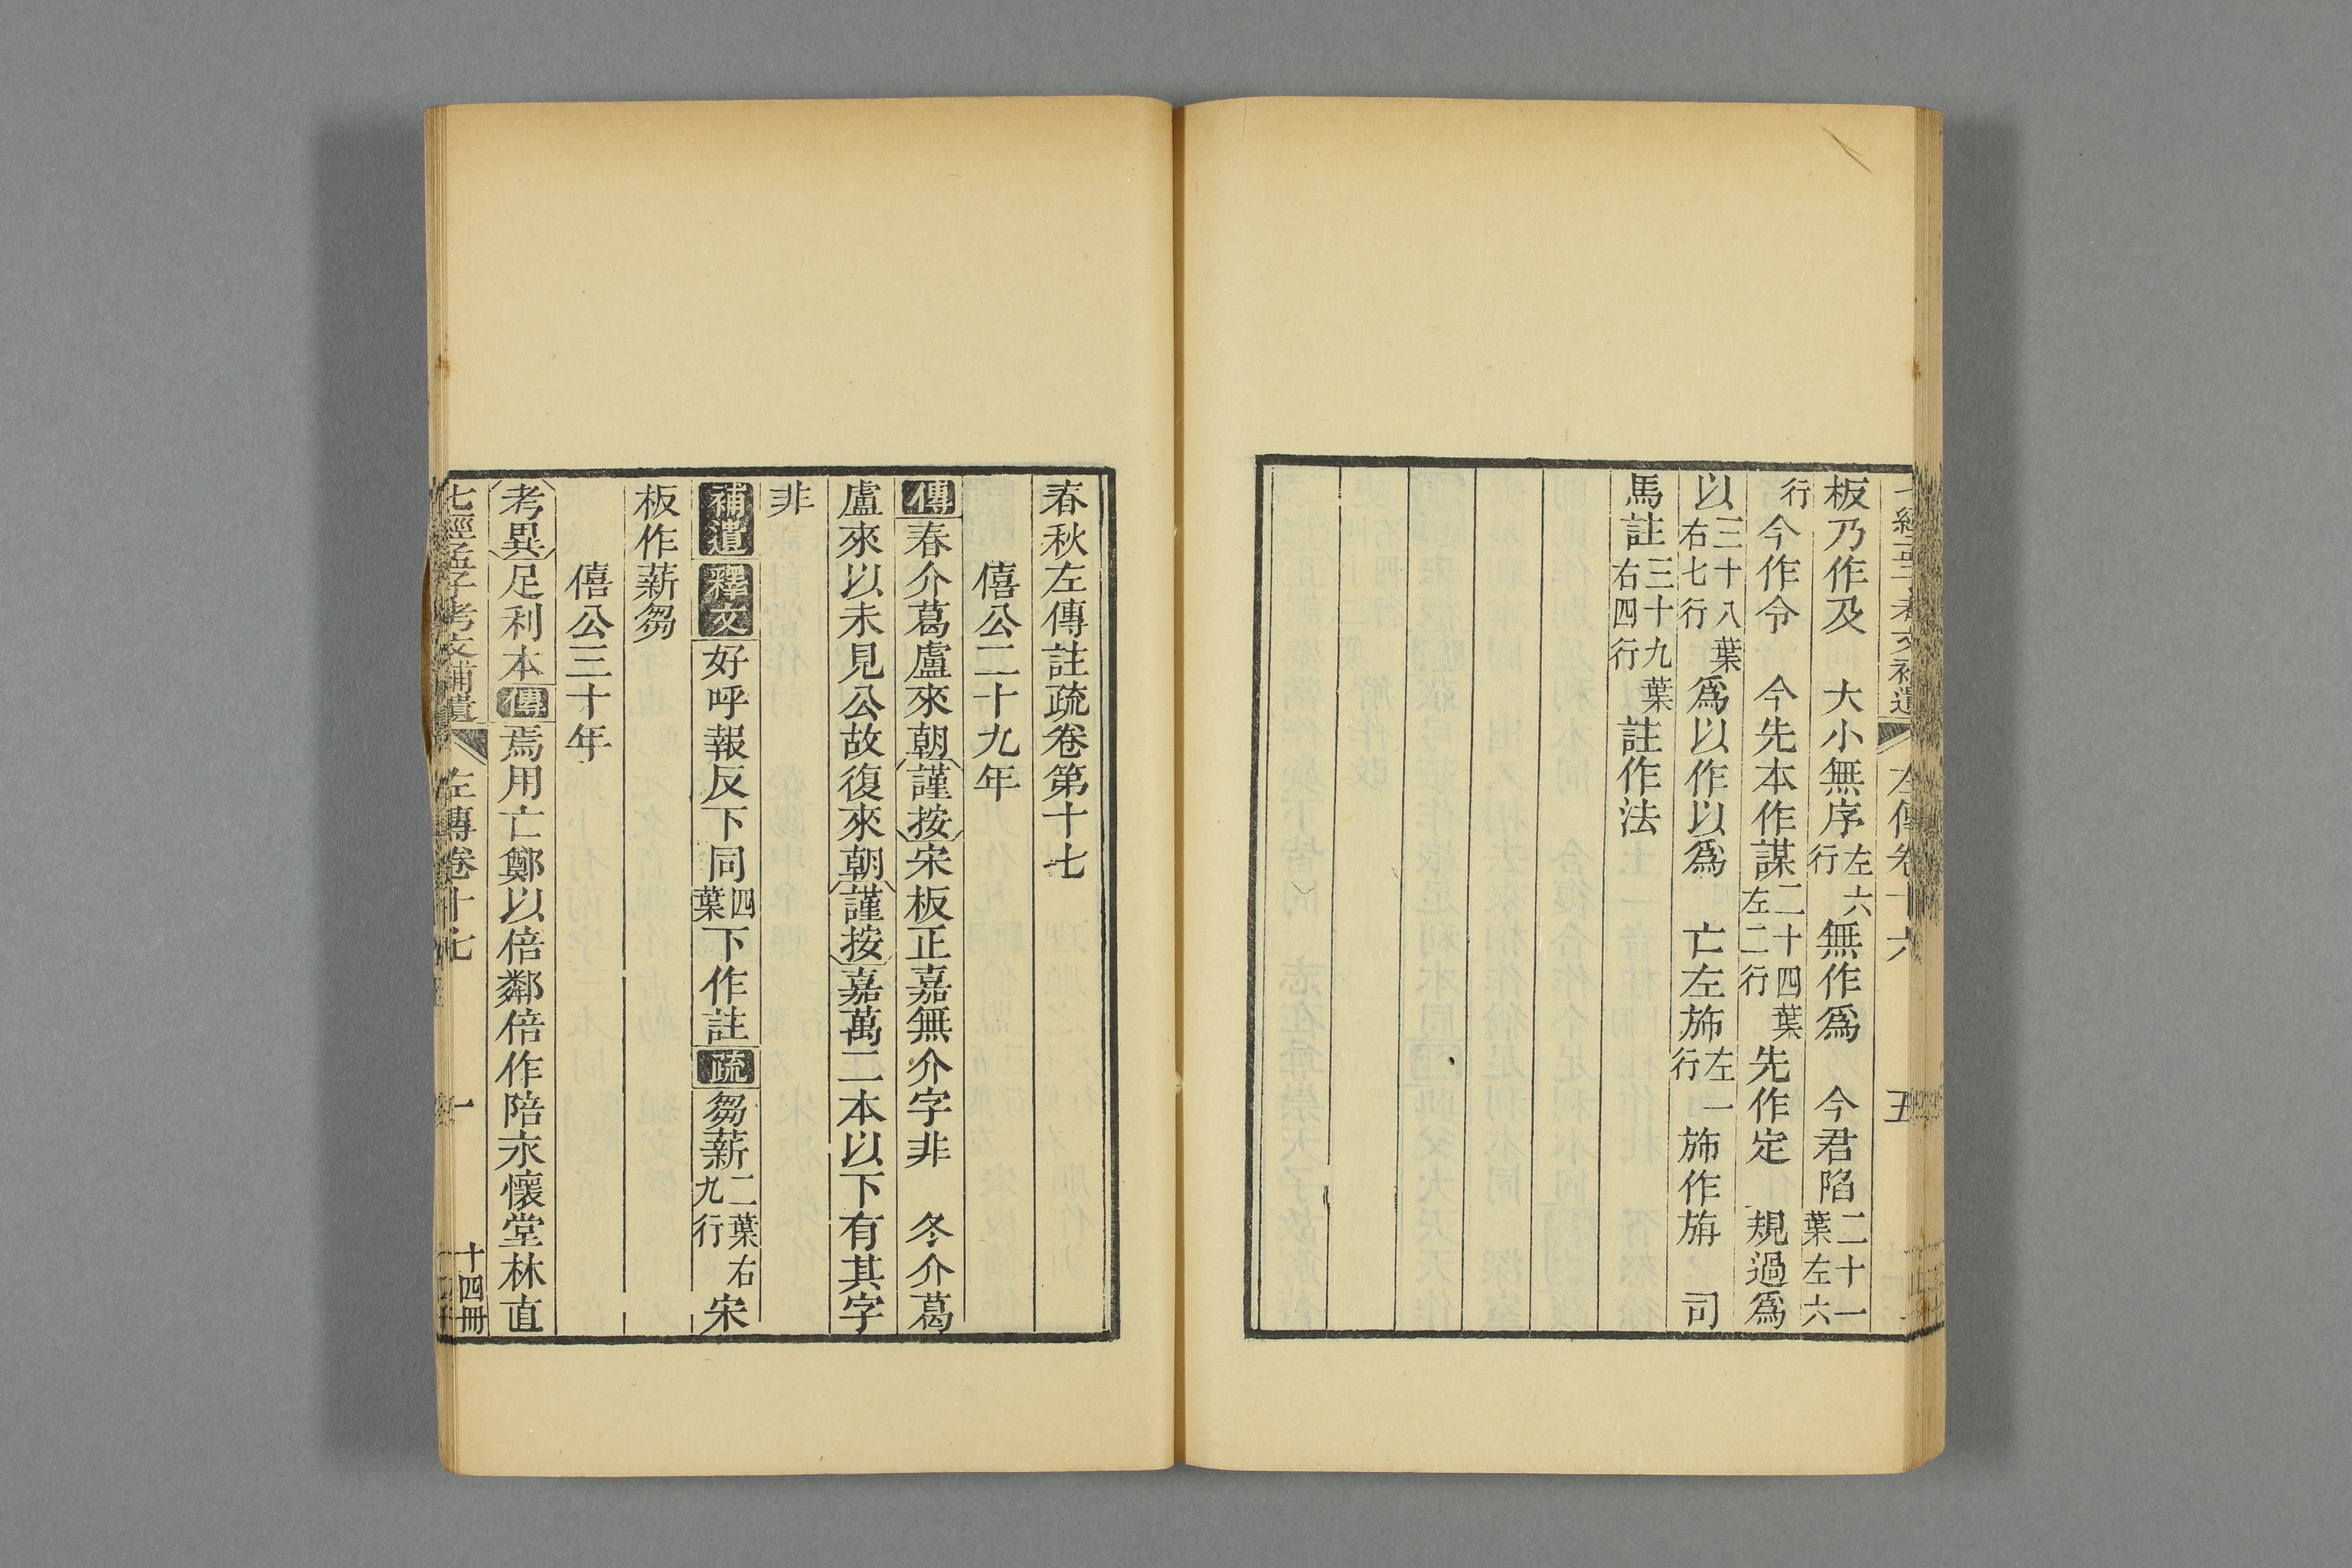 七經孟子考文補遺 左傳卷十六 五
板乃作及 大小無序左六行無作爲 今君陷二十一葉左六
行今作令 今先本作謀二十四葉左二行先作定 規過爲
以三十八葉右七行爲以作以爲 亡左斾左一行斾作旃 司
馬註三十九葉右四行註作法
春秋左傳註疏卷第十七
僖公二十九年
傳春介葛盧來朝謹按宋板正嘉無介字非 冬介葛
盧來以未見公故復來朝謹按嘉萬二本以下有其字
非
補遺釋文好呼報反下同四葉下作註疏芻薪二葉右九行宋
板作薪芻
僖公三十年
考異足利本傳焉用亡鄭以倍鄰倍作陪永懷堂林直
七經孟子考文補遺 左傳卷十七 一 十四冊